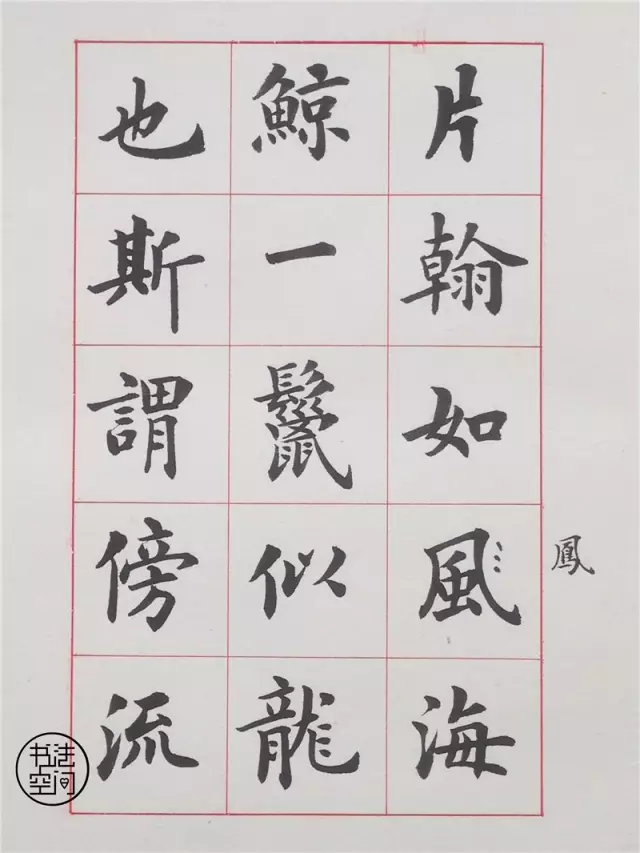 片翰如風海
鳳
鯨一鬣似龍
也斯謂傍流
书法空间